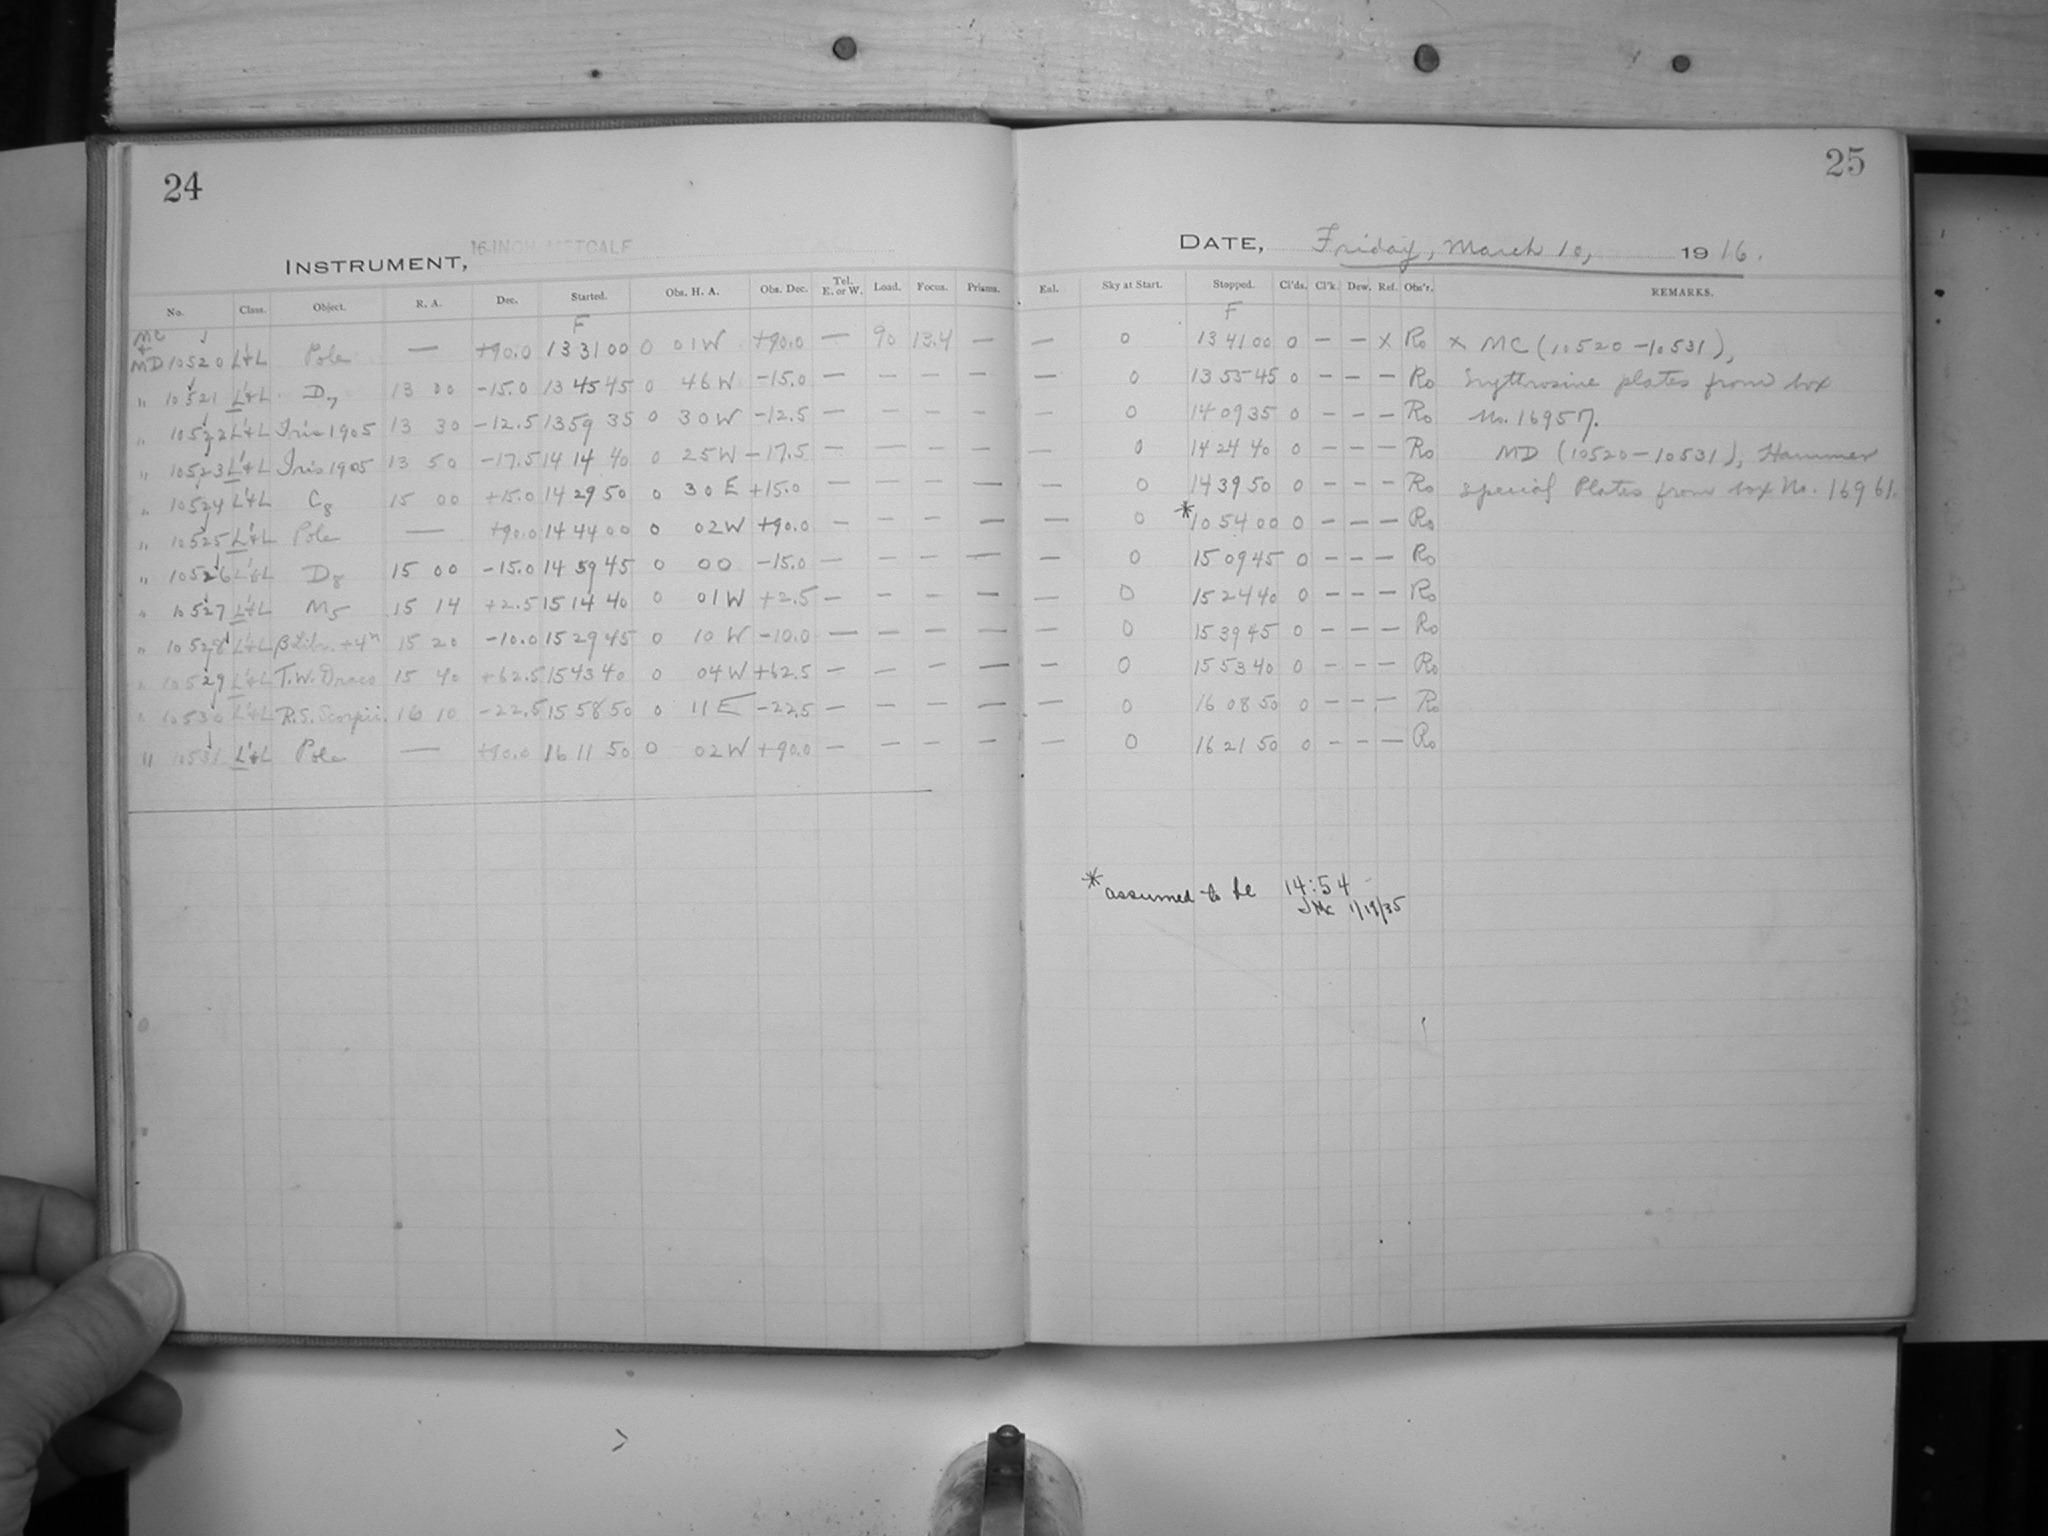 24
25
INSTRUMENT, 16-INCH METCALF
DATE, Friday, March 10, 1916.
No. Class. Object. R. A. Dec. Started. Obs. H. A. Obs. Dec. Tel. E. or W. Load. Focus. Prisms. Eal. Sky at Start. Stopped. Cl'ds. Cl'k. Dew. Ref. Obs'r. REMARKS.
F F
MC
+
MD 10520 L'&L Pole — +90.0 13 31 00 0 01 W +90.0 — 90 13.4 — — 0 13 41 00 0 — — x Ro x MC (10520-10531),
" 10521 L'&L D7 13 00 -15.0 13 45 45 0 46 W -15.0 — — — — — 0 13 55 45 0 — — — Ro Erythrosine plates from box
" 10522 L'&L Iris 1905 13 30 -12.5 13 59 35 0 30 W -12.5 — — — — — 0 14 09 35 0 — — — Ro No. 16957.
" 10523 L'&L Iris 1905 13 50 -17.5 14 14 40 0 25 W -17.5 — — — — — 0 14 24 40 0 — — — Ro MD (10520-10531), Hammer
" 10524 L'&L C8 15 00 +15.0 14 29 50 0 30 E +15.0 — — — — — 0 14 39 50 0 — — — Ro Special Plates from box No. 16961.
" 10525 L'&L Pole — +90.0 14 44 00 0 02 W +90.0 — — — — — 0 * 10 54 00 0 — — — Ro
" 10526 L'&L D8 15 00 -15.0 14 59 45 0 00 -15.0 — — — — — 0 15 09 45 0 — — — Ro
" 10527 L'&L M5 15 14 +2.5 15 14 40 0 01 W +2.5 — — — — — 0 15 24 40 0 — — — Ro
" 10528 L'&L β Libr. +4m 15 20 -10.0 15 29 45 0 10 W -10.0 — — — — — 0 15 39 45 0 — — — Ro
" 10529 L'&L T.W. Draco 15 40 +62.5 15 43 40 0 04 W +62.5 — — — — — 0 15 53 40 0 — — — Ro
" 10530 L'&L R.S. Scorpii. 16 10 -22.5 15 58 50 0 11 E -22.5 — — — — — 0 16 08 50 0 — — — Ro
" 10531 L'&L Pole — +90.0 16 11 50 0 02 W +90.0 — — — — — 0 16 21 50 0 — — — Ro
* assumed to be 14:54
JMc 1/19/35